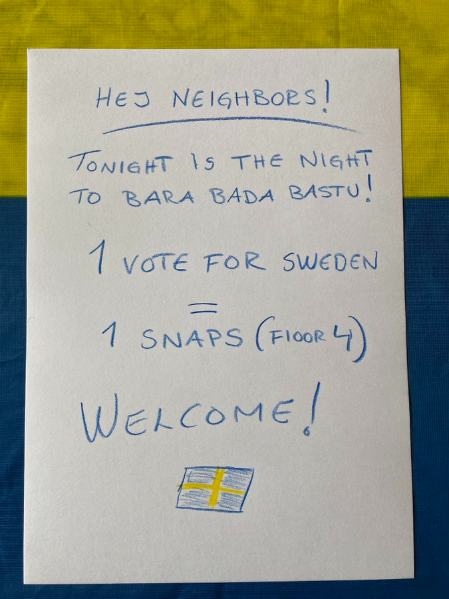 HEJ NEIGHBORS!
TONIGHT IS THE NIGHT
TO BARA BADA BASTU!
1 VOTE FOR SWEDEN
=
1 SNAPS (FLOOR 4)
WELCOME!